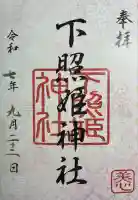 奉拝
下照姫神社
下照姫神社
令和七年九月二十二日